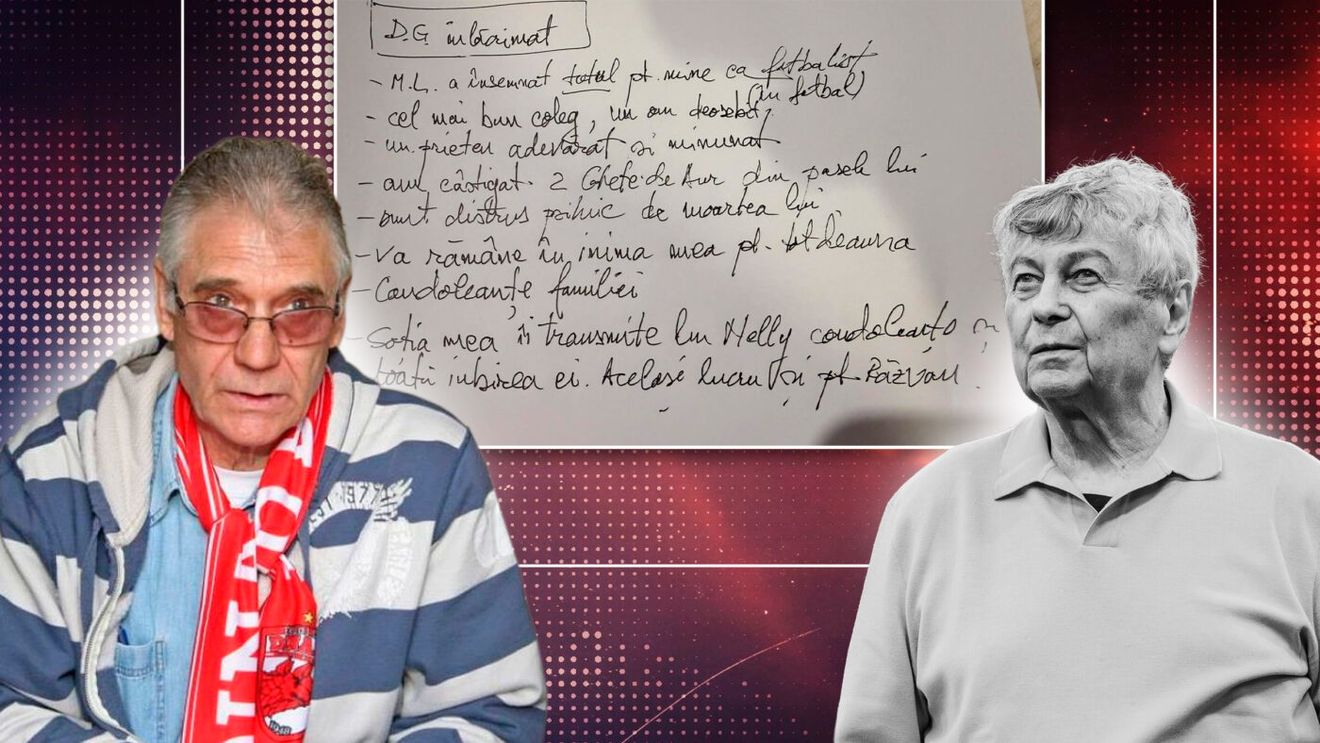 D.G. înlăcrimat
- M.L. a însemnat totul pt. mine ca fotbalist
(în fotbal)
- cel mai bun coleg, un om deosebit,
- un prieten adevărat și minunat
- am câștigat 2 Ghete de Aur din pasele lui
- sunt distrus psihic de moartea lui
- Va rămâne în inima mea pt. totdeauna
- Condoleanțe familiei
- Soția mea îi transmite lui Nelly condoleanțe și
toată iubirea ei. Același lucru și pt Răzvan.